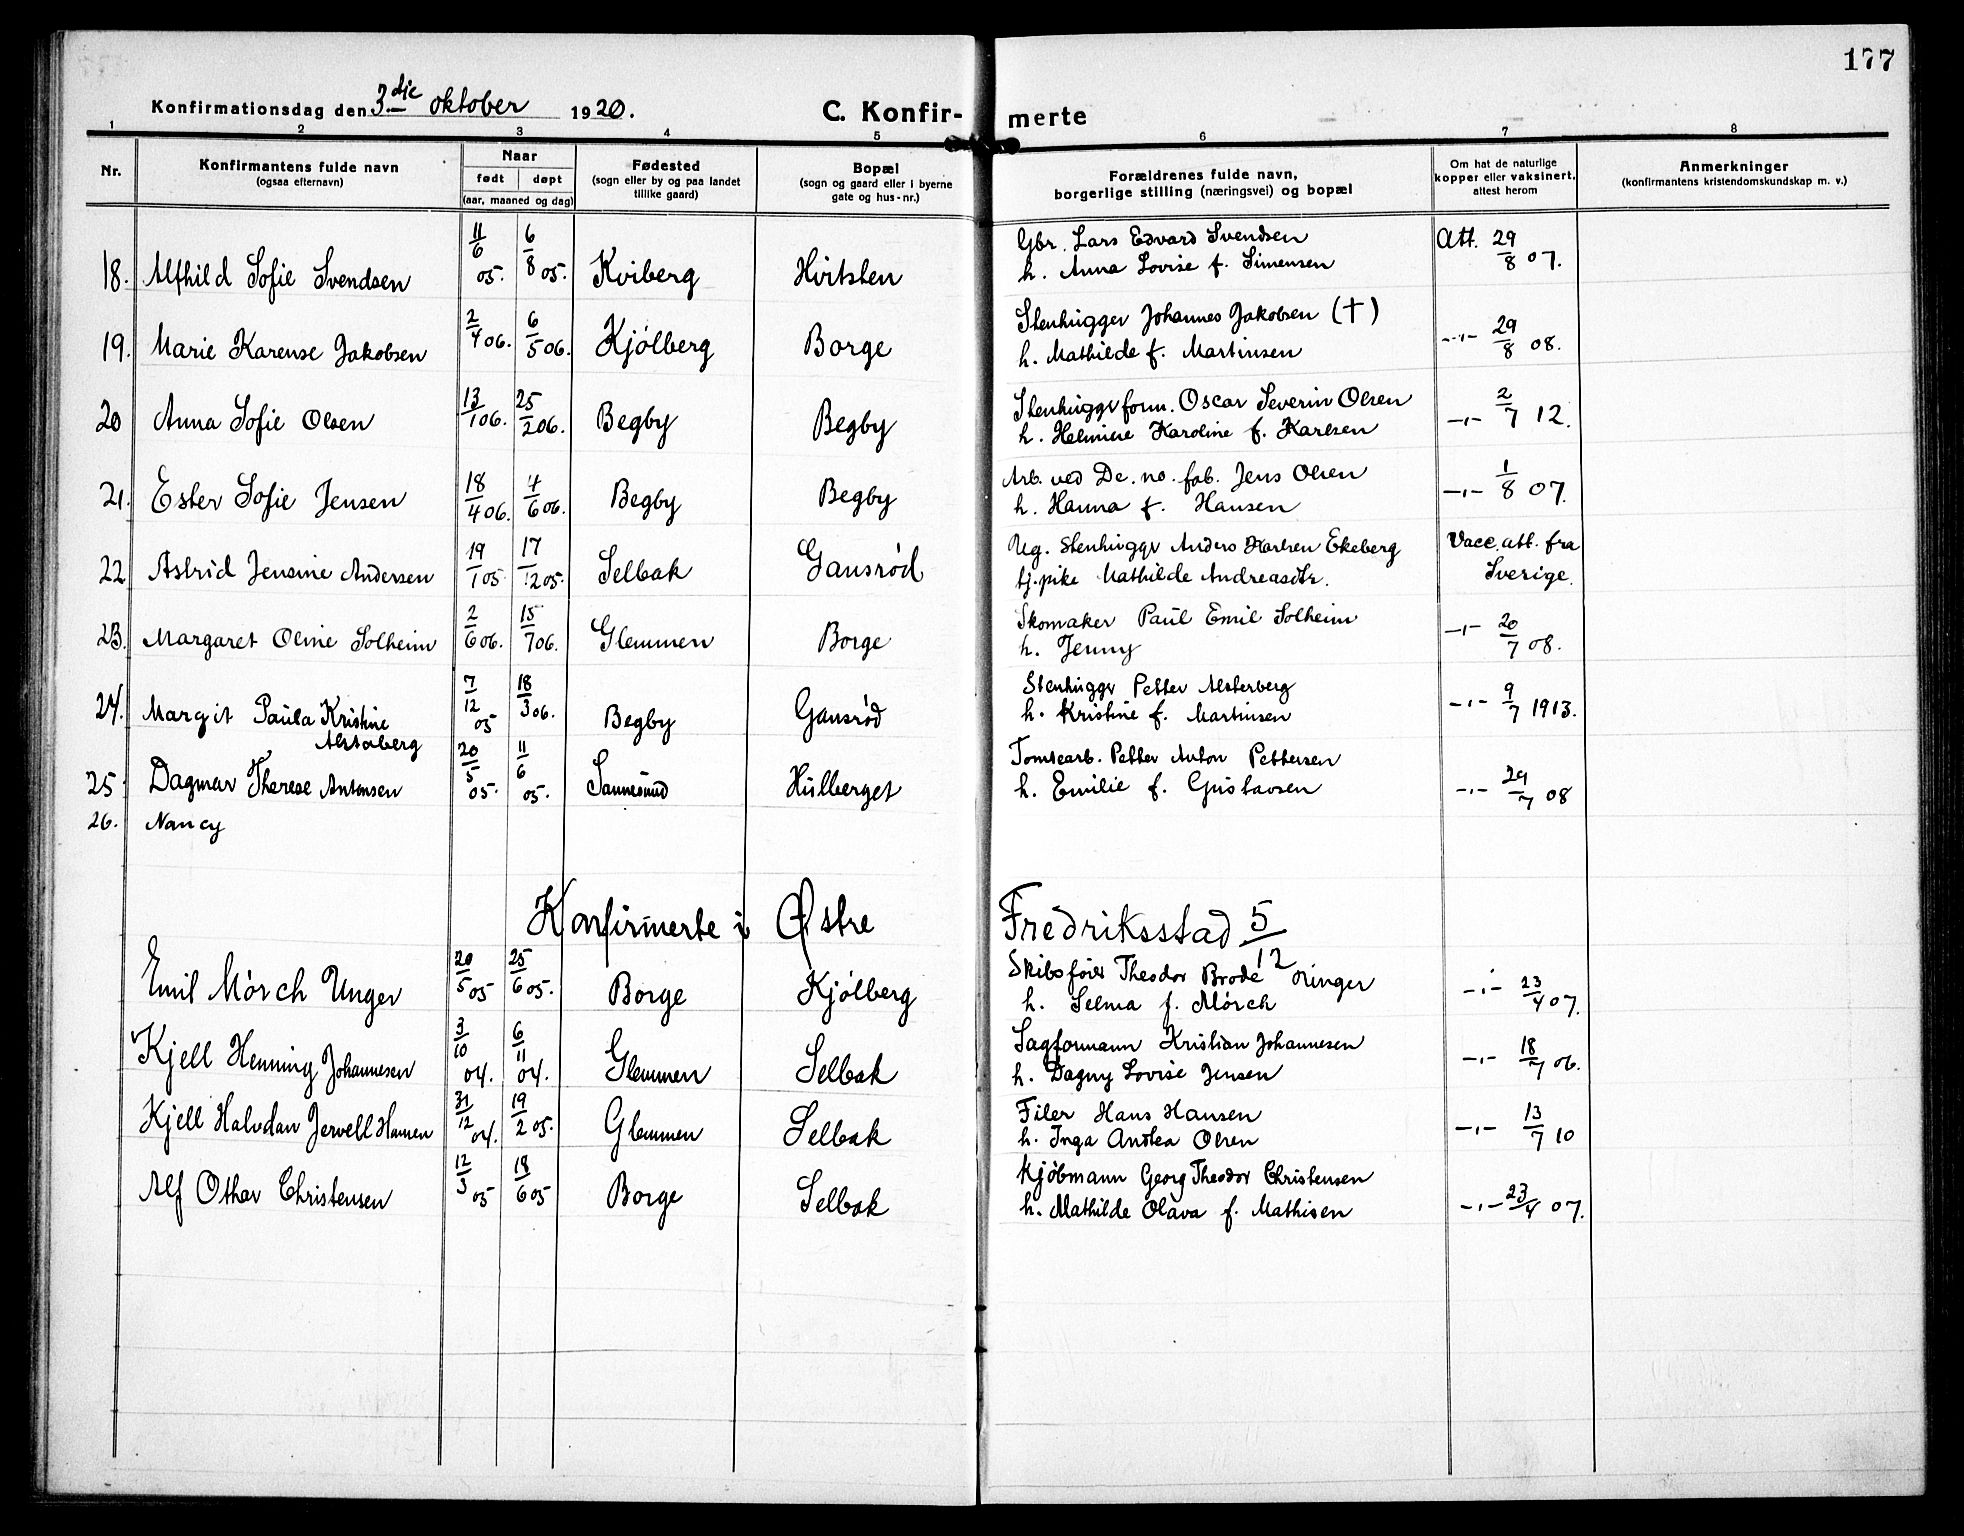 177
Konfirmationsdag den 3die oktober 1920. C. Konfir- merte
1 2 3 4 5 6 7 8
Nr. Konfirmantens fulde navn (ogsaa efternavn) Naar født døpt (aar, maaned og dag) Fødested (sogn eller by og paa landet tillike gaard) Bopæl (sogn og gaard eller i byerne gate og hus-nr.) Forældrenes fulde navn, borgerlige stilling (næringsvei) og bopæl Om hat de naturlige kopper eller vaksinert, attest herom Anmerkninger (konfirmantens kristendomskundskap m. v.)
18. Alfhild Sofie Svendsen 11/6 05. 6/8 05. Kviberg Hvitsten Gbr. Lars Edvard Svendsen Att. 29/8 07.
h. Anna Lovise f. Simensen
19. Marie Karense Jakobsen 2/4 06. 6/5 06. Kjølberg Borge Stenhugger Johannes Jakobsen (†) -"- 29/8 08.
h. Mathilde f. Martinsen
20 Anna Sofie Olsen 13/1 06. 25/2 06. Begby Begby Stenhuggerform. Oscar Severin Olsen -"- 2/7 12.
h. Karoline f. Karlsen
21. Ester Sofie Jensen 18/4 06. 4/6 06. Begby Begby Arb. ved De. no. fab. Jens Olsen -"- 1/8 07.
h. Hanna f. Hansen
22 Astrid Jensine Andersen 19/1 05. 17/12 05. Selbak Gansrød Ug. Stenhugger Anders Karlsen Ekeberg Vacc. att. fra
tj.pike Mathilde Andreasdtr. Sverige.
23. Margaret Oline Solheim 2/6 06. 15/7 06. Glemmen Borge Skomaker Paul Emil Solheim -"- 20/7 08.
h. Jenny
24. Margit Paula Kristine 7/12 05 18/3 06. Begby Gansrød Stenhugger Petter Alsterberg -"- 9/7 1913.
Alstaberg h. Kristine f. Martinsen
25. Dagmar Therese Antonsen 20/5 05. 11/6 05. Sannesund Hulberget Tomtearb. Petter Anton Pettersen -"- 29/7 08
h. Emilie f. Gustavsen
26. Nancy
Konfirmerte i Østre Fredriksstad 5/12
Emil Mørch Unger 20/5 05 25/6 05. Borge Kjølberg Skibsfører Theodor Brode Unger -"- 23/4 07.
h. Selma f. Mørch
Kjell Henning Johannesen 3/10 04. 6/11 04. Glemmen Selbak Sagformann Kristian Johannesen -"- 18/7 06.
h. Dagny Lovise Jensen
Kjell Halvdan Jervell Hansen 31/12 04. 19/2 05. Glemmen Selbak Filer Hans Hansen -"- 13/7 10
h. Inga Andrea Olsen
Alf Othar Christensen 12/3 05 18/6 05 Borge Selbak Kjøbmann Georg Theodor Christensen -"- 23/4 07.
h. Mathilde Olava f. Mathisen